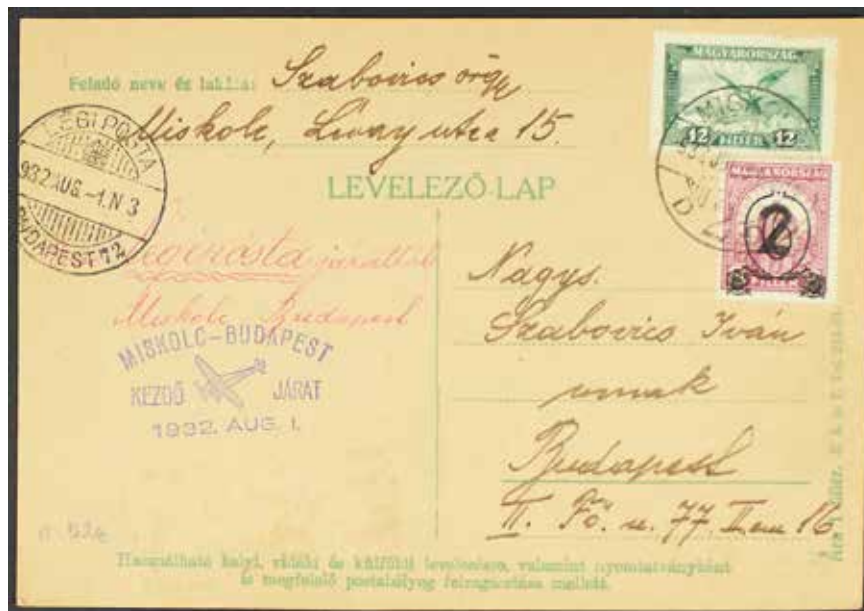 Feladó neve és lakása: Szabovics
Miskolc, Levay utca 15.
LEVELEZŐ-LAP
LÉGI POSTA
932 AUG.-1.N 3
BUDAPEST 72
MAGYARORSZÁG
12 FILLÉR 12
MAGYARORSZÁG
2
Légiposta járattal
Miskolc Budapest
MISKOLC-BUDAPEST
KEZDŐ JÁRAT
1932. AUG. 1.
Nagys.
Szabovics Iván
urnak
Budapest
II. Fő. u. 77. II em 16
Használható helyi, vidéki és külföldi levelezésre, valamint nyomtatványként
is megfelelő postabélyeg felragasztása mellett.